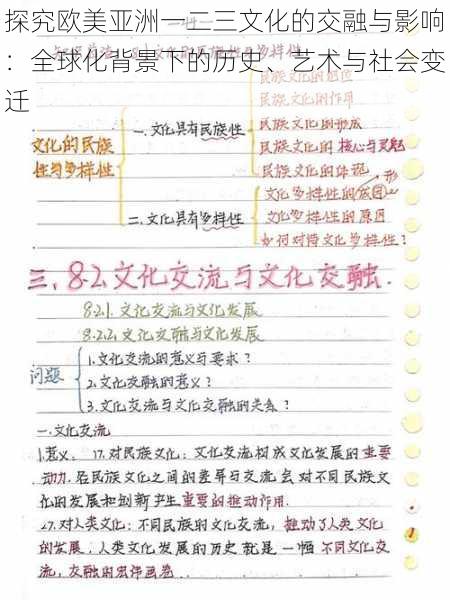 探究欧美亚洲一二三文化的交融与影响
：全球化背景下的历史、艺术与社会变
迁
民族文化的地位
民族文化的作用
一.文化具有民族性
民族文化的形成
文化的民族
民族文化的核心与灵魂
性与多样性
民族文化的体现
形
文化多样性的成因
二.文化具有多样性
文化多样性的原因
如何对待文化多样性？
三、8.2.文化交流与文化交融.
8.2.1.文化交流与文化发展
8.2.2.文化交融与文化发展
问题
1.文化交流的意义与要求？
2.文化交融的意义？
3.文化交流与文化交融的关系？
一.文化交流
1.意义. 17.对民族文化：文化交流构成文化发展的重要
动力.各民族文化之间的差异与交流会对不同民族文
化的发展和创新产生重要的推动作用.
27.对人类文化：不同民族的文化交流，推动了人类文化
的发展.人类文化发展的历史就是一幅不同文化交
流，交融的宏伟画卷.